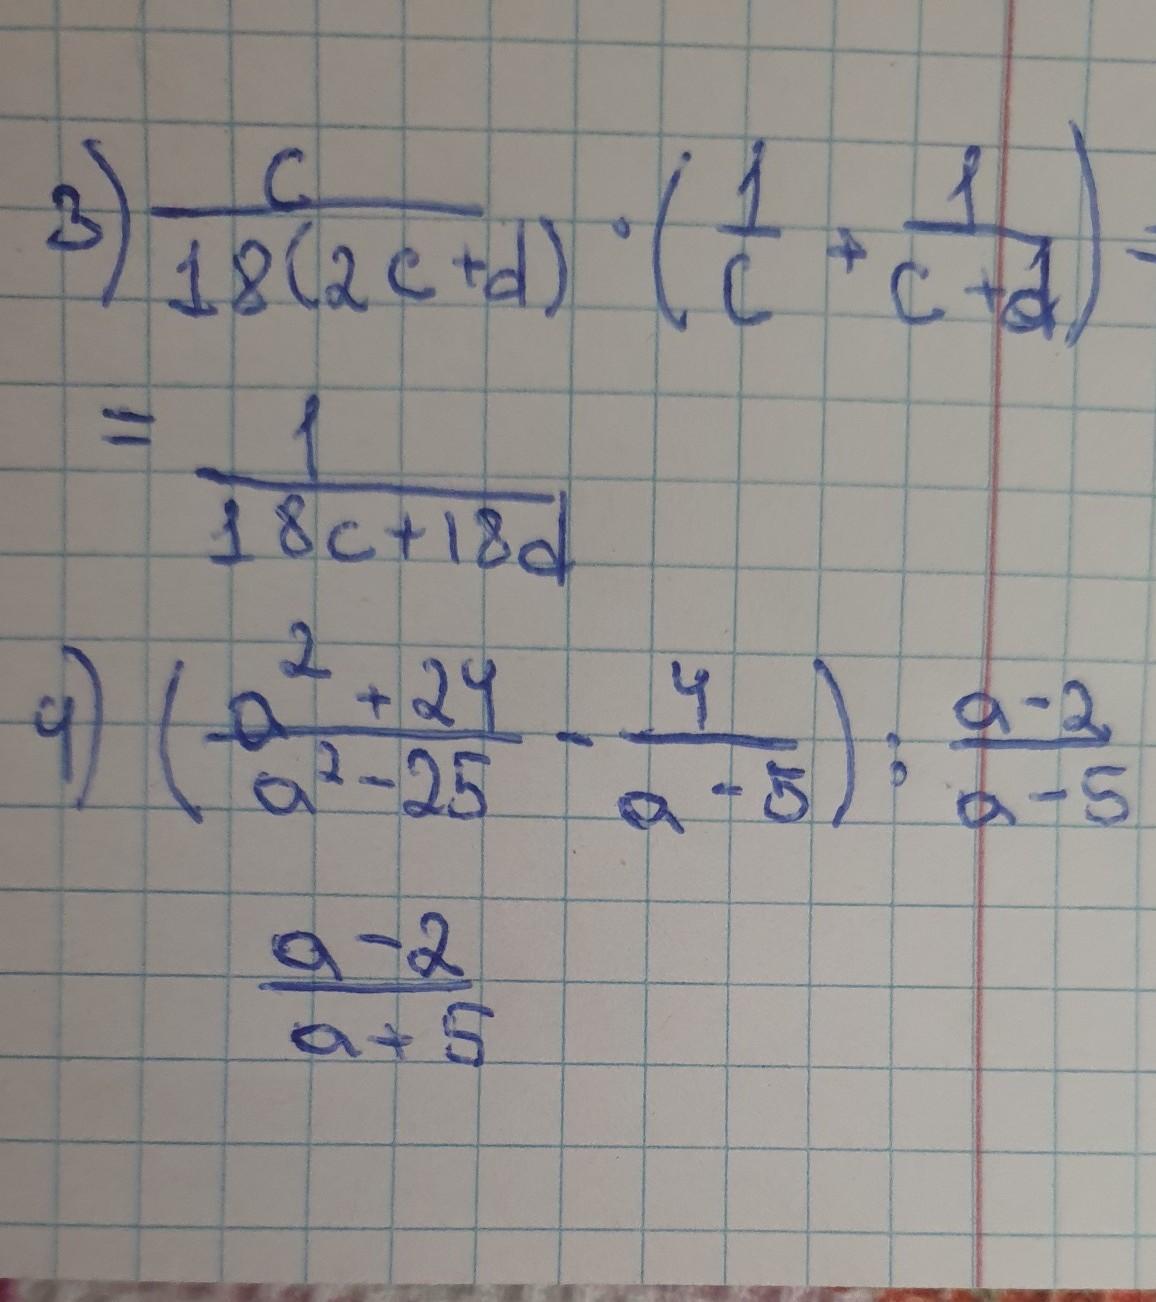 3) c/(18(2c+d)) · (1/c + 1/(c+d)) =
= 1/(18c+18d)
4) ((a²+24)/(a²-25) - 4/(a-5)) : (a-2)/(a-5)
(a-2)/(a+5)